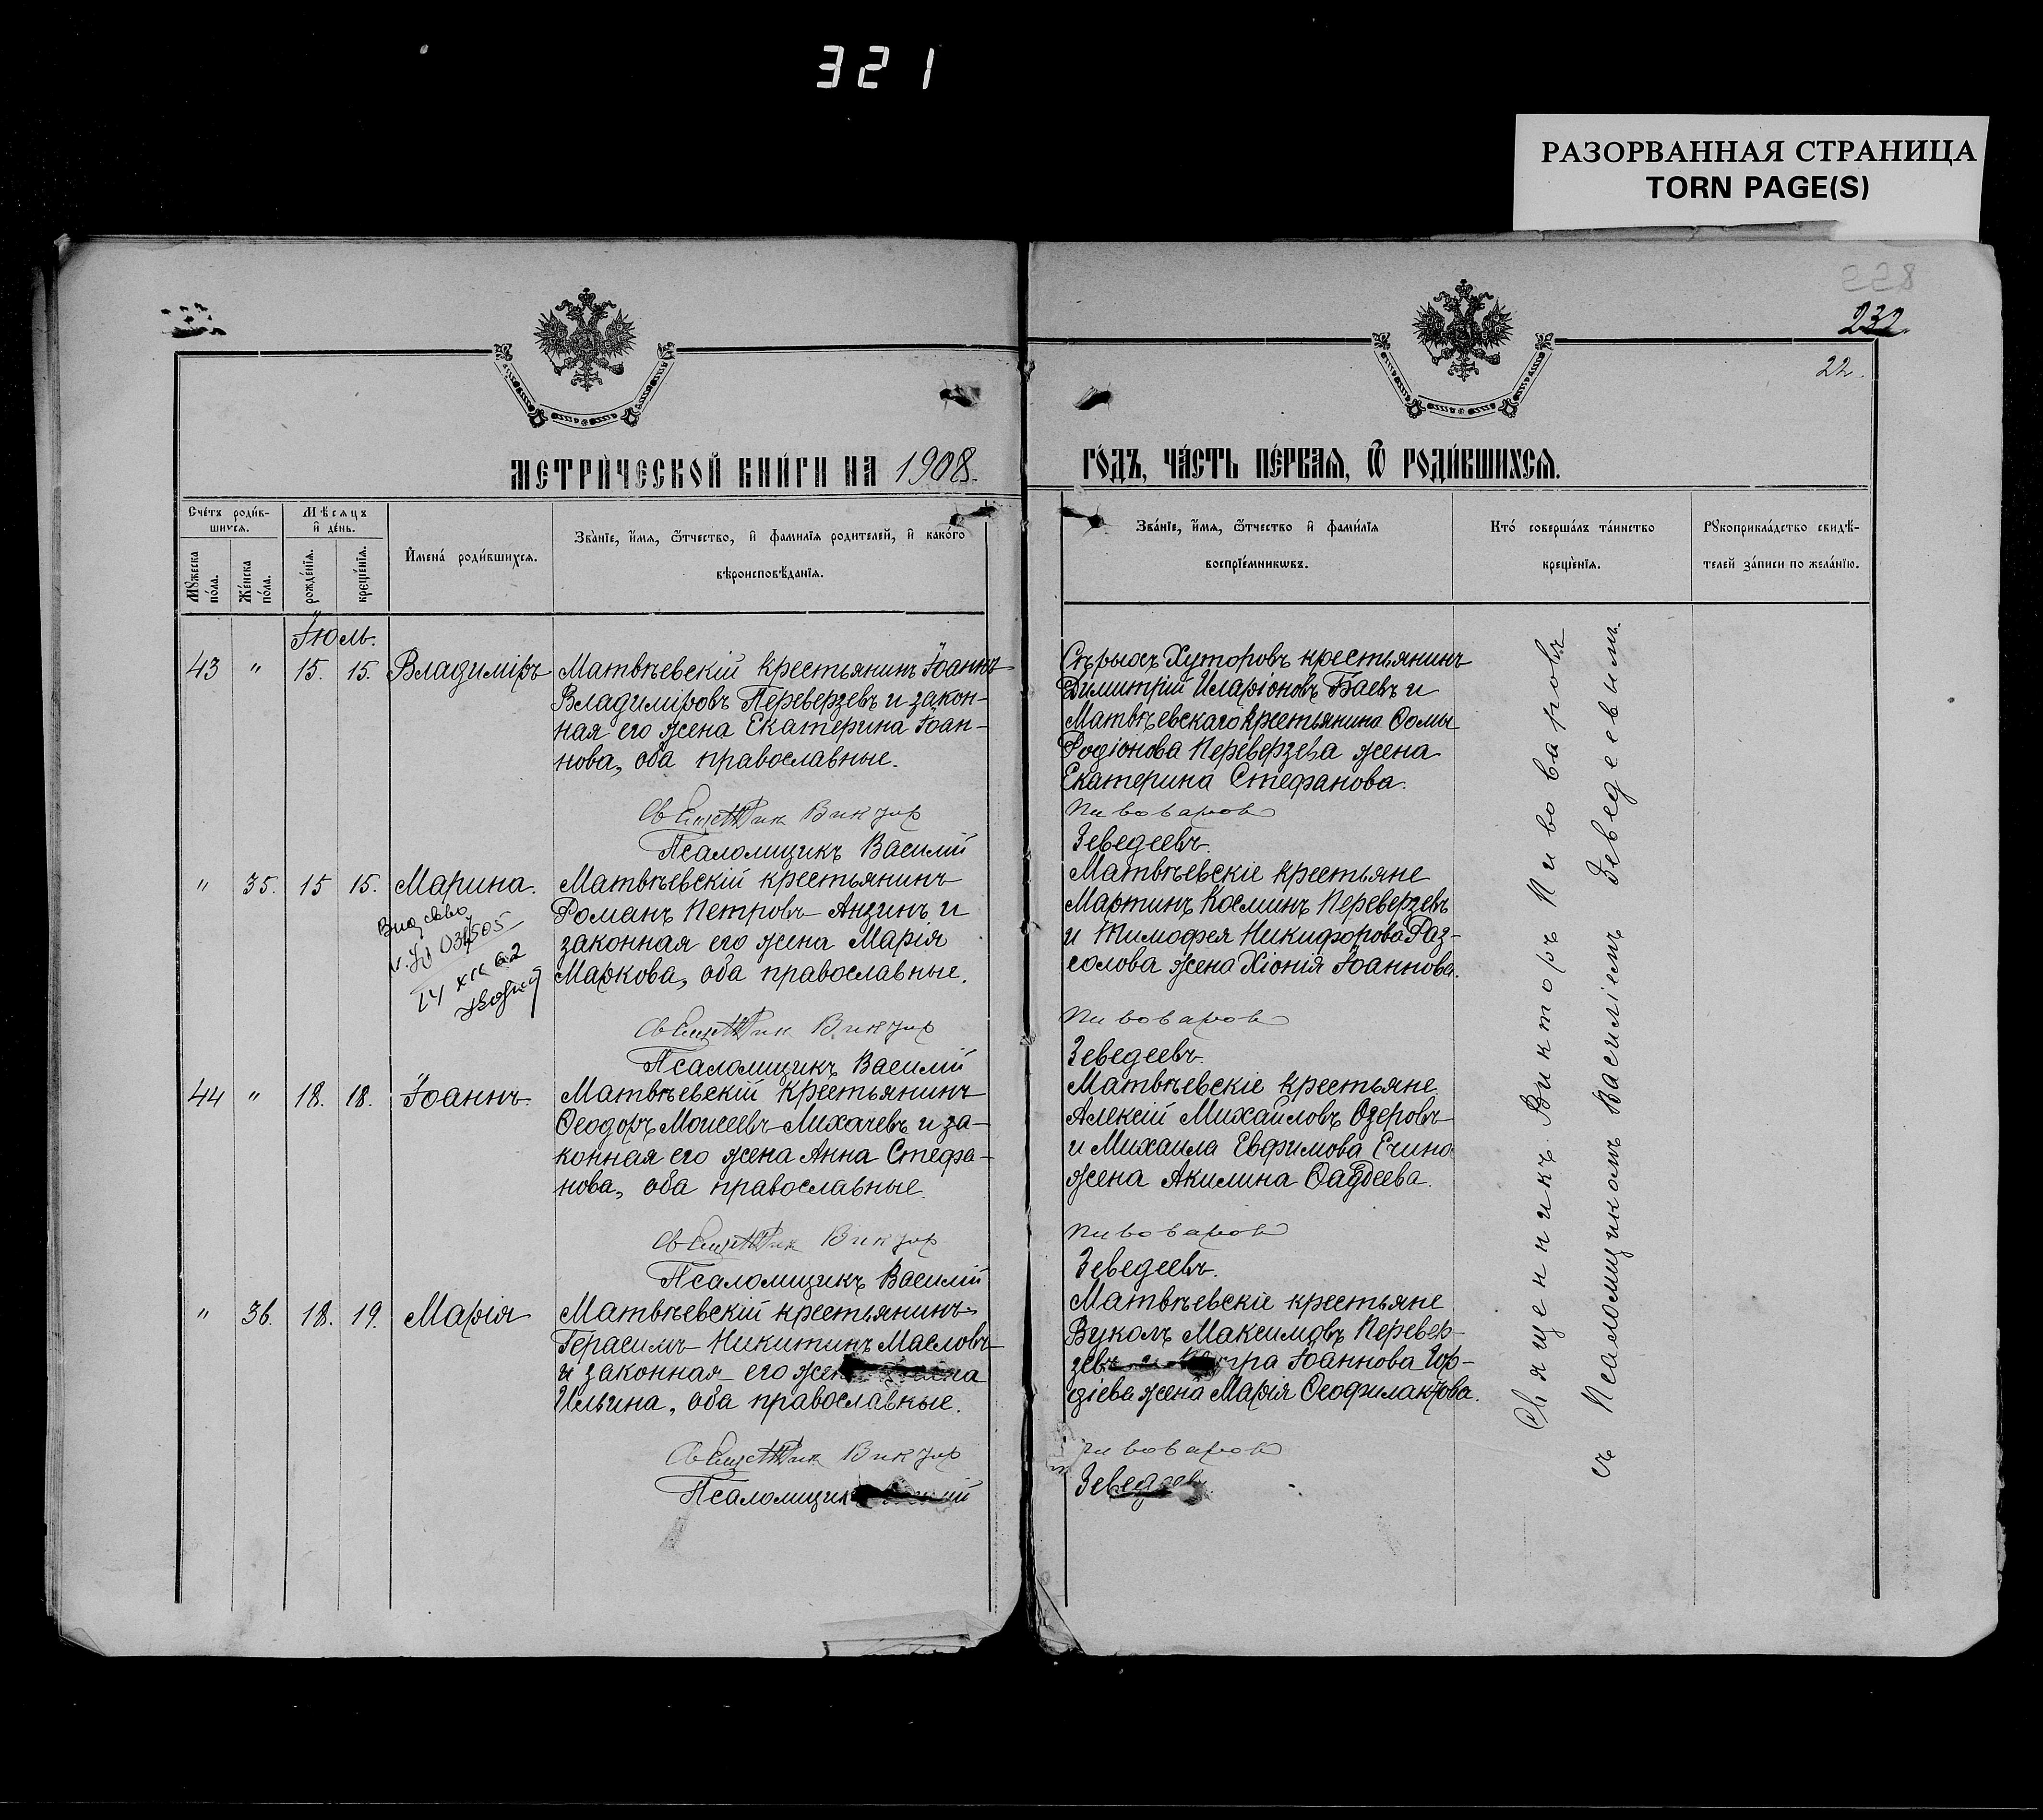 321
РАЗОРВАННАЯ СТРАНИЦА
TORN PAGE(S)
228
232.
22.
МЕТРИ́ЧЕСКОЙ КНИ́ГИ НА 1908.
ГО́ДЪ, ЧА́СТЬ ПЕ́РВАЯ, Ѿ РОДИ́ВШИХСЯ.
Сче́тъ роди́в-
шихся.
Мѣсяцъ
и де́нь.
Му́жеска
по́ла.
Же́нска
по́ла.
рожде́нїя.
креще́нїя.
Имена́ роди́вшихся.
Зва́нїе, и́мя, ѿтчество, и фами́лїя роди́телей, и како́го
вѣроисповѣ́данїя.
Зва́нїе, и́мя, ѿтчество и фами́лїя
воспрїе́мникѡвъ.
Кто́ соверша́лъ та́инство
креще́нїя.
Рукоприкла́дство свидѣ́-
телей за́писи по жела́нїю.
Іюль.
43 " 15. 15. Владиміръ
Матвѣевскій крестьянинъ Іоаннъ
Владиміровъ Переверзевъ и закон-
ная его жена Екатерина Іоан-
нова, оба православные.
Священник Виктор
Псаломщикъ Василій
Сѣрыхъ Хуторовъ крестьянинъ
Димитрій Иларіоновъ Баевъ и
Матвѣевскаго крестьянина Ѳомы
Родіонова Переверзева жена
Екатерина Стефанова.
Пивоваров
Зеведеевъ.
" 35. 15 15. Марина.
24 XII 62
Матвѣевскій крестьянинъ
Романъ Петровъ Анзинъ и
законная его жена Марія
Маркова, оба православные.
Священник Виктор
Псаломщикъ Василій
Матвѣевскіе крестьяне
Мартинъ Косминъ Переверзевъ
и Тимофея Никифорова Раз-
солова жена Хіонія Іоаннова.
Пивоваров
Зеведеевъ.
44 " 18. 18. Іоаннъ.
Матвѣевскій крестьянинъ
Ѳеодоръ Моисеевъ Лихачевъ и за-
конная его жена Анна Стефа-
нова, оба православные.
Священник Виктор
Псаломщикъ Василій
Матвѣевскіе крестьяне
Алексій Михаиловъ Озеровъ
и Михаила Евфимова Ечина
жена Акилина Ѳаддеева.
Пивоваров
Зеведеевъ.
" 36. 18. 19. Марія
Матвѣевскій крестьянинъ
Герасимъ Никитинъ Масловъ
и законная его
Ильина, оба православные.
Священник Виктор
Матвѣевскіе крестьяне
Вуколъ Максимовъ Перевер-
зевъ и Іоаннова Гор-
діева жена Марія Ѳеофилактова.
Пивоваров
Зеведеевъ
Священникъ Викторъ Пивоваровъ
съ Псаломщикомъ Василіемъ Зеведеевымъ.